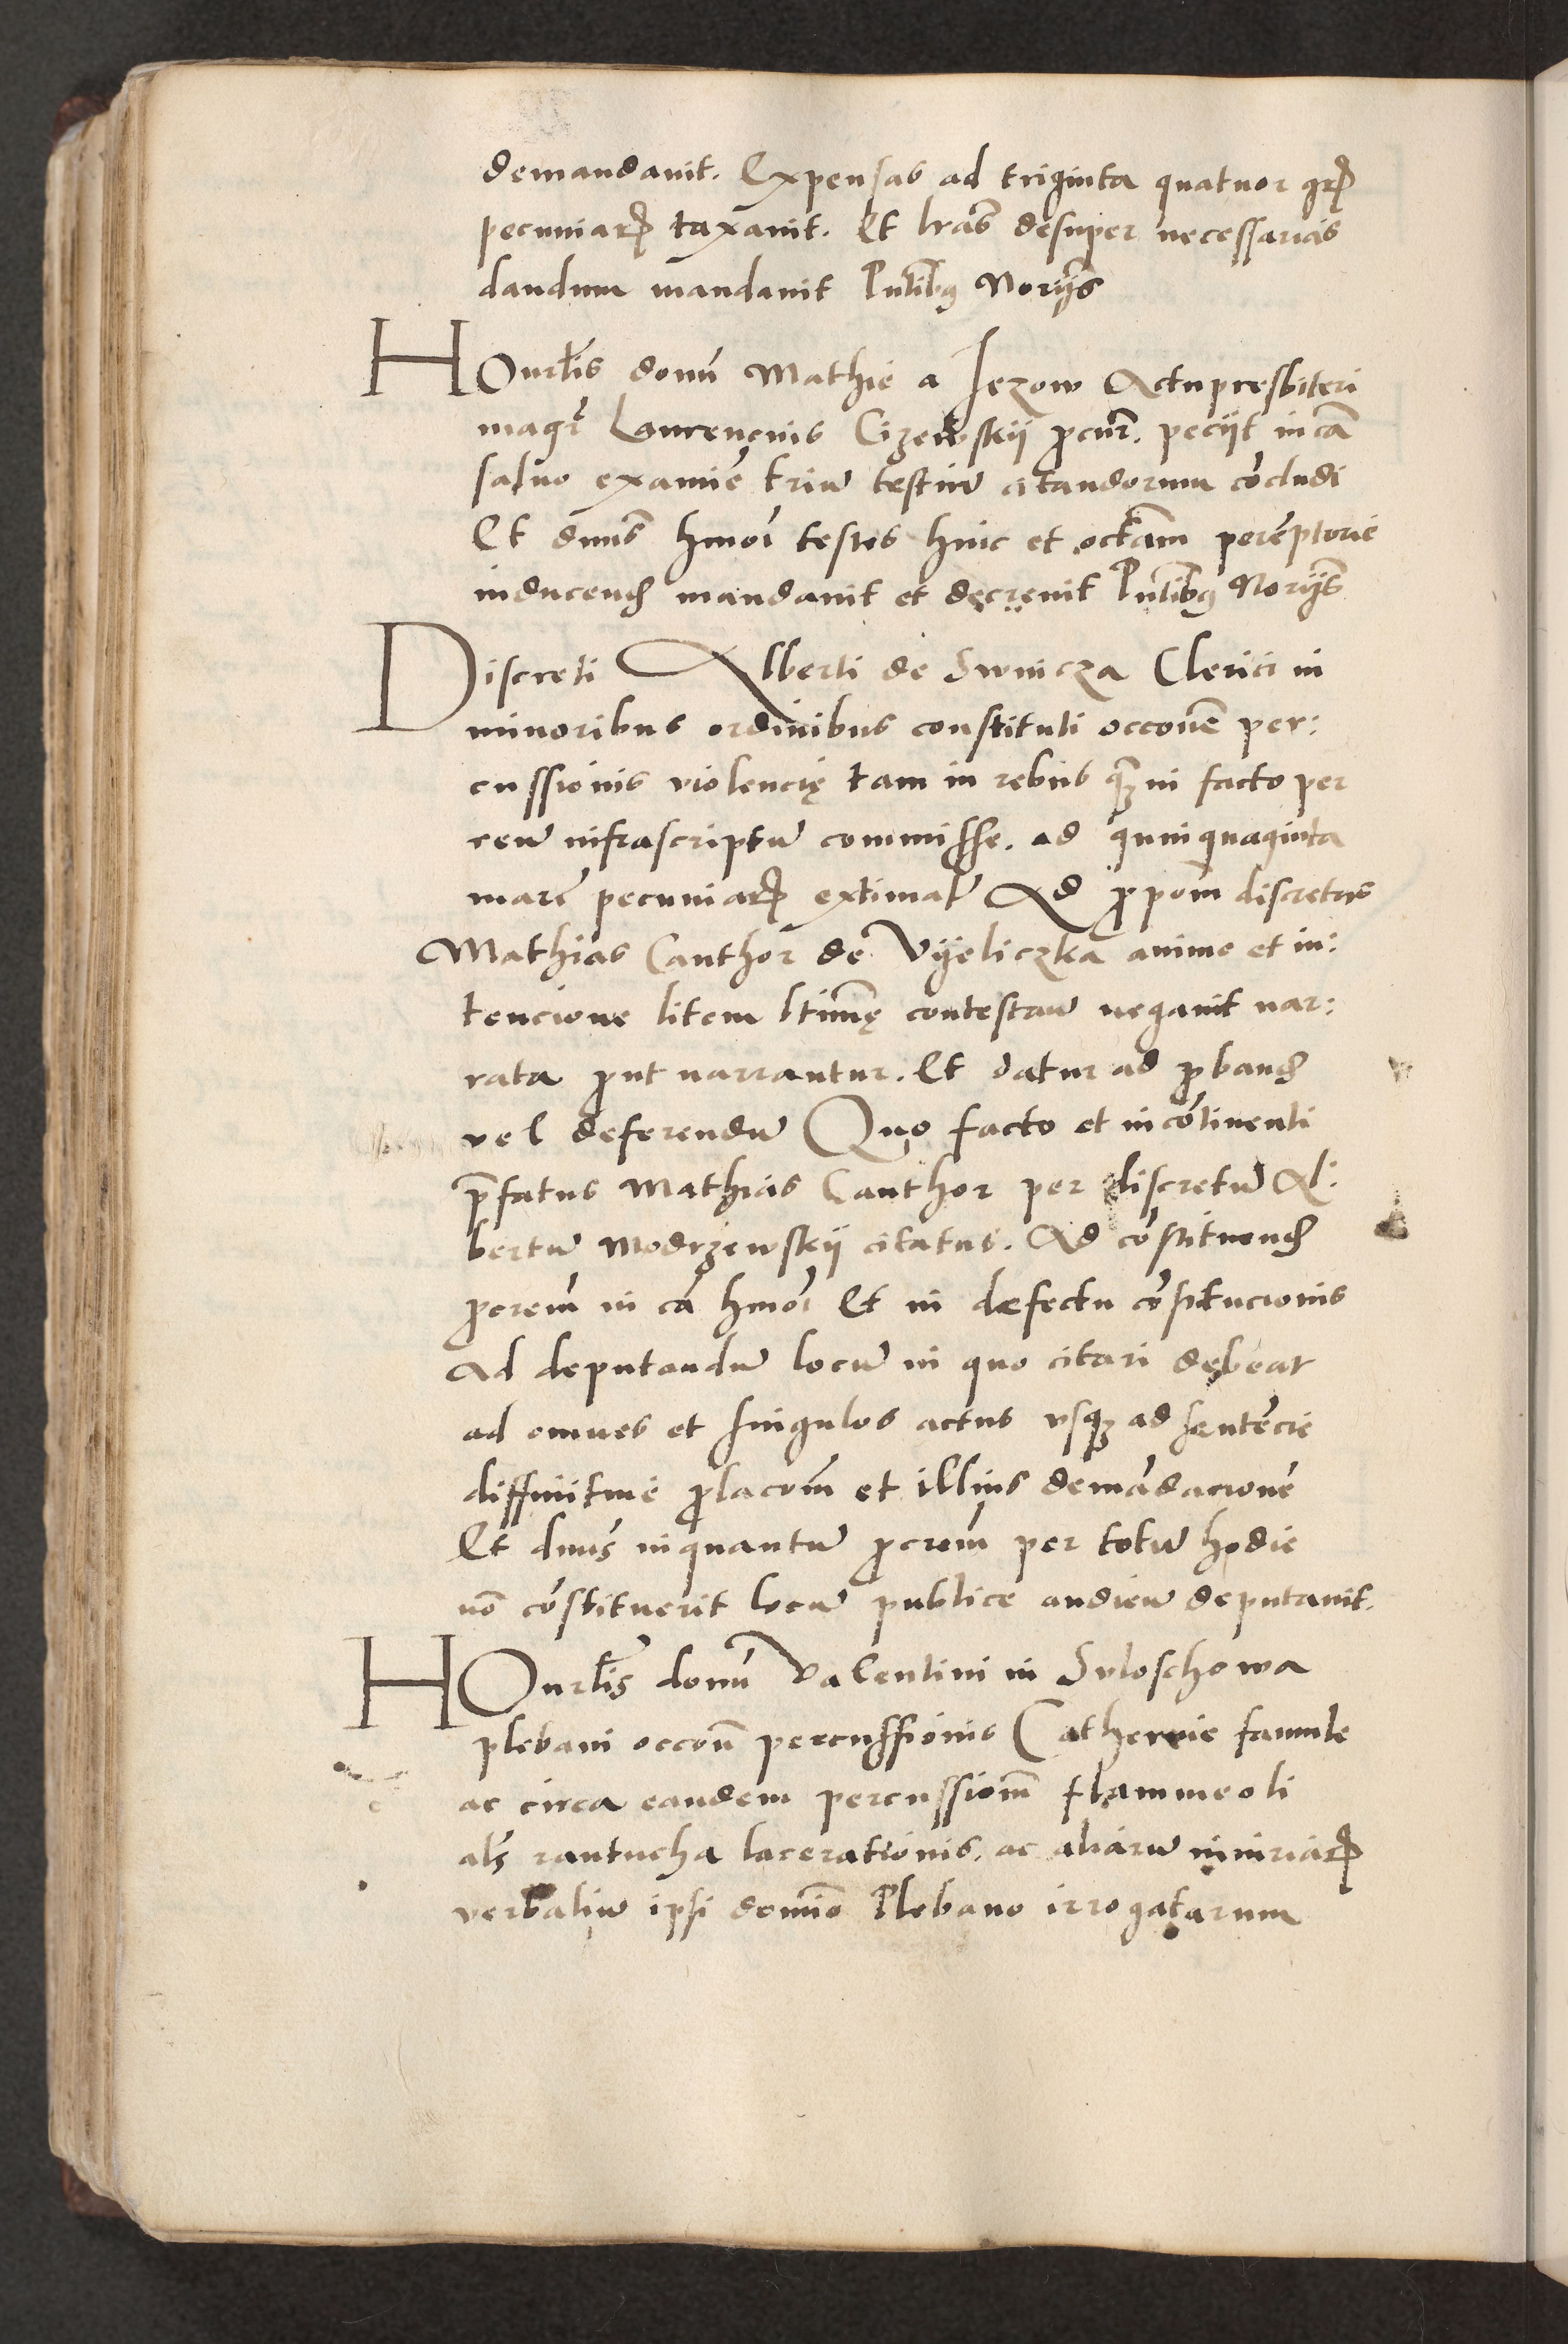 demandauit. Expensas ad triginta quatuor grꝝ
pecuniarꝝ taxauit. Et lrãs desuper necessarias
dandum mandauit Pntibꝫ Norijs
HOnrlis domĩ Mathie a Jezow Actupresbiteri
magrĩ Laurencius Cizewskij ꝓcur̃. pecijt in cã
saluo examĩe triũ testiũ citandorum cõcludi
Et dnus hmõi testes hinc et octãm perẽptorie
inducend mandauit et decreuit Pntibꝫ Norijs
Discreti Alberti de Swnicza Clerici in
minoribus ordinibus constituti occonẽ per:
cussionis violencię tam in rebus qꝫ in facto per
reũ infrascriptũ commisse. ad quinquaginta
marc̃ pecuniarꝝ extimat̃ Ad ꝓpom̃ discretus
Mathias Canthor de Vyeliczka animo et in:
tencione litem ltimę contestan̄ negauit nar:
rata ꝓut narrantur. Et datur ad ꝓband
vel deferendũ Quo facto et in cõtinenti
p̃fatus Mathias Canthor per discretũ Al:
bertũ Modrzewskij citatus. Ad cõstituend
ꝓcrem̃ in cã hmõi Et in defectu cõstitucionis
Ad deputandũ locũ in quo citari debeat
ad omnes et singulos actus vsqꝫ ad sentẽcie
diffinitiue ꝓlacom̃ et illius demãdacionẽ
Et dnus inquantũ ꝓcrem̃ per totũ hodie
nõ cõstituerit locũ publice audien̄ deputauit.
HOnrlis domĩ Valentini in Suloschowa
plebani occon̄ percussionis Catherine famule
ac circa eandem percussiom̃ flammeoli
als rantucha lacerationis. ac aliarũ iniuriarꝝ
verbaliũ ipsi domĩo Plebano irrogatarum